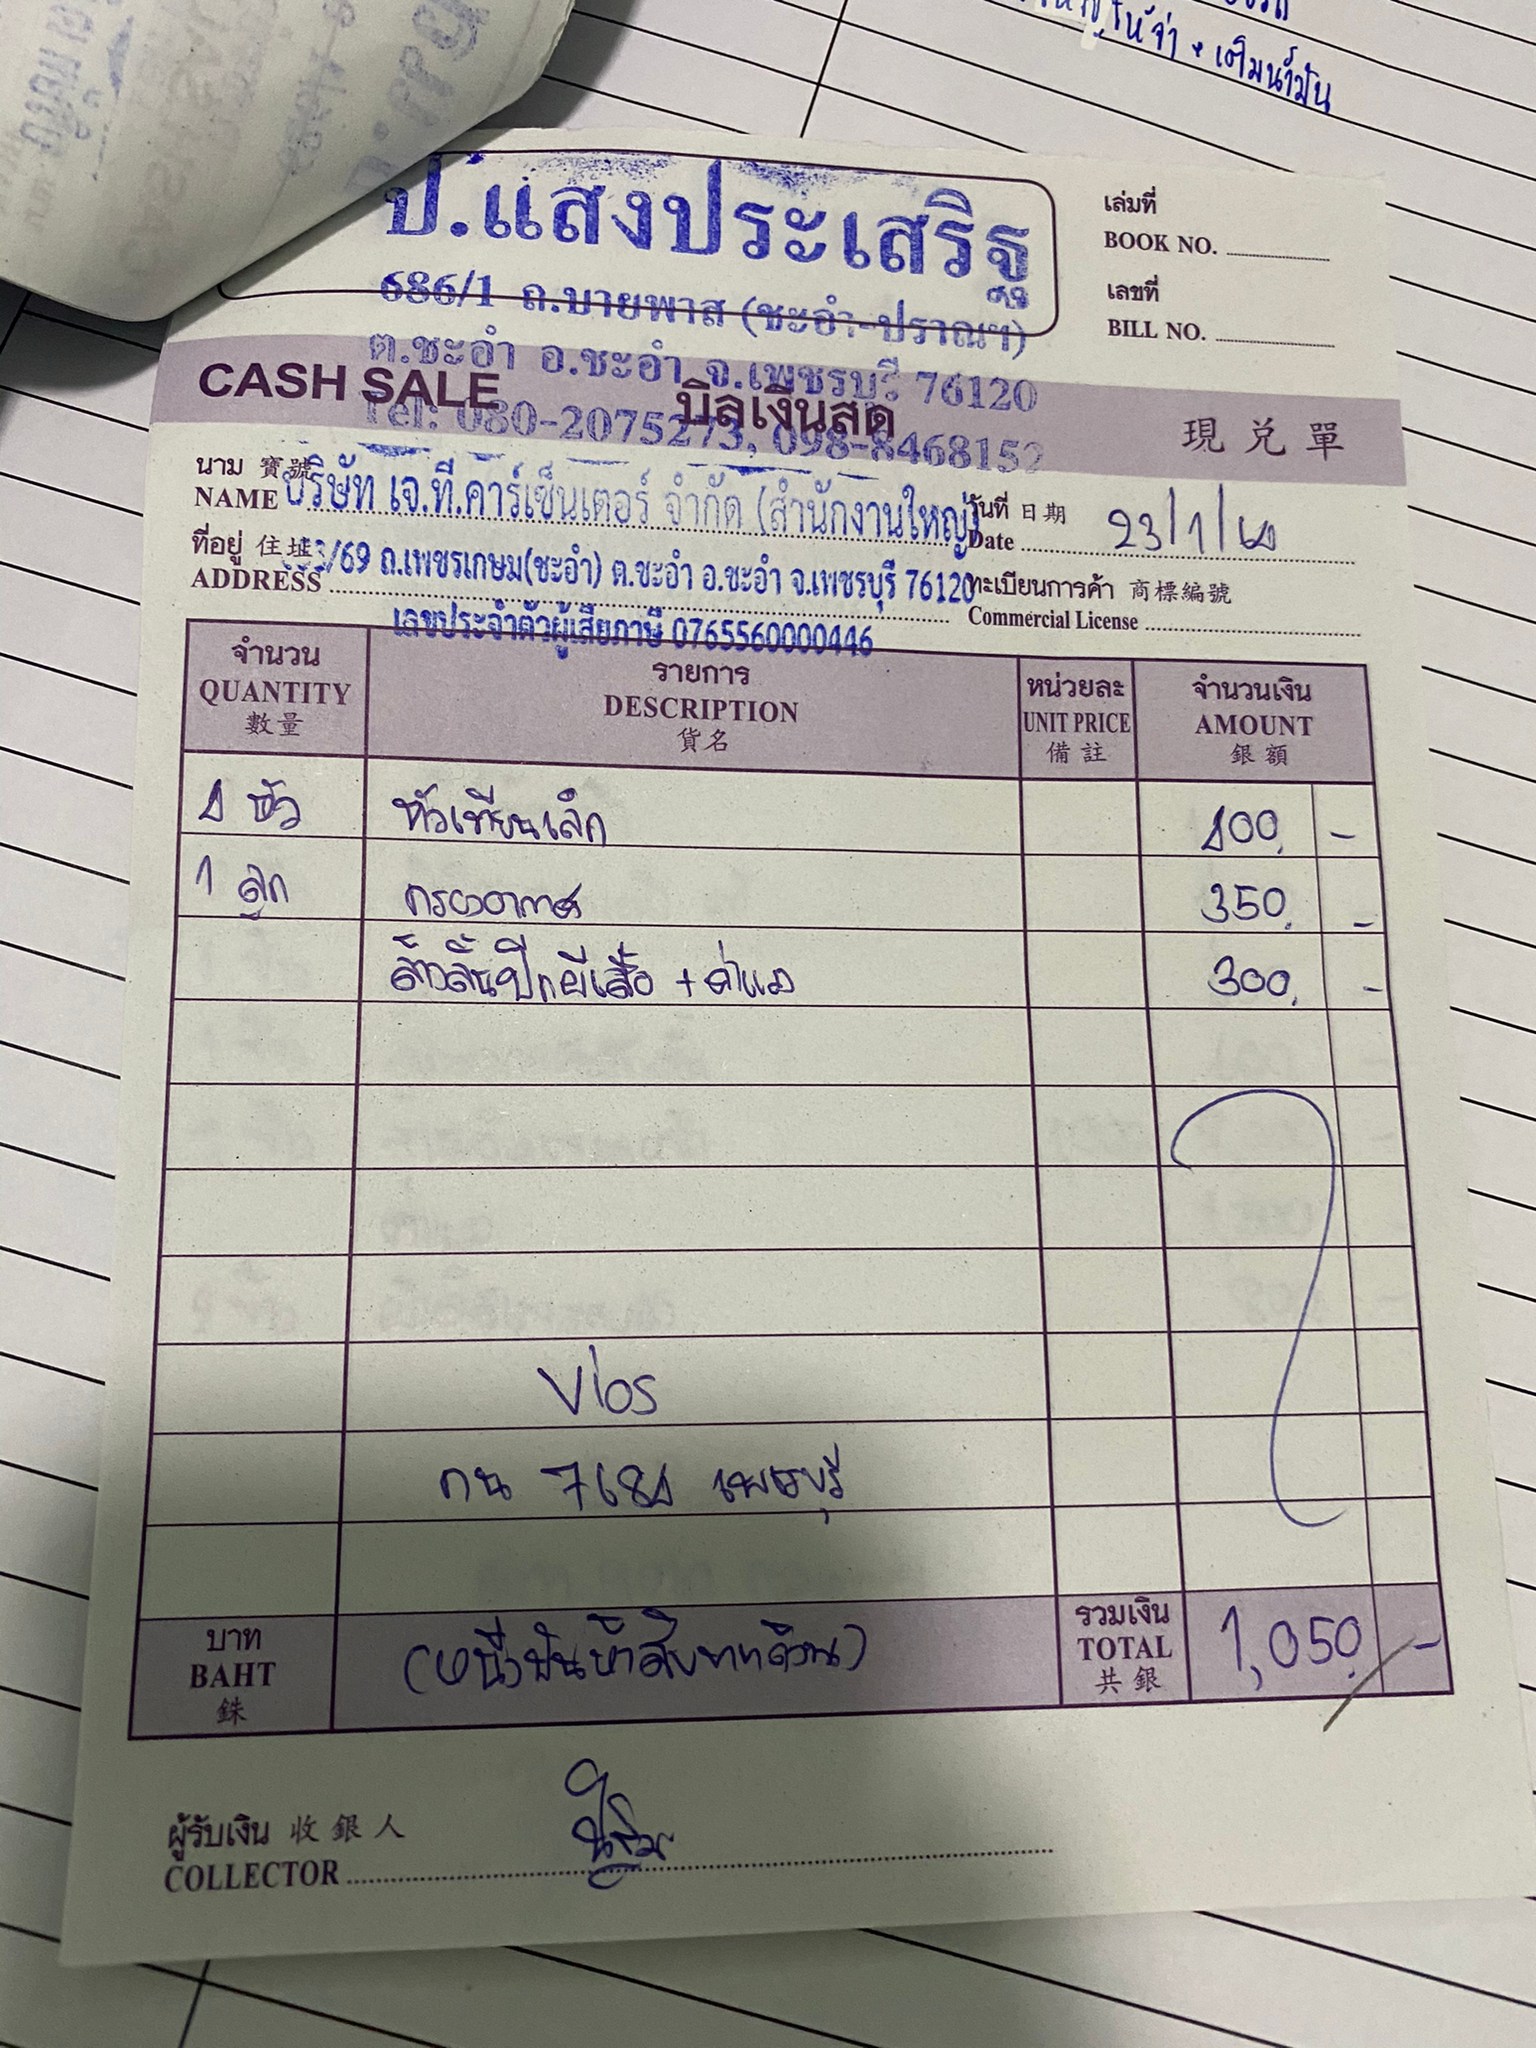 ให้จ่า + เติมน้ำมัน
ป.แสงประเสริฐ
686/1 ถ.บายพาส (ชะอำ-ปราณฯ)
ต.ชะอำ อ.ชะอำ จ.เพชรบุรี 76120
Tel: 080-2075273, 098-8468152
เล่มที่
BOOK NO.
เลขที่
BILL NO.
CASH SALE บิลเงินสด 現兌單
นาม 寶號
NAME บริษัท เจ.ที.คาร์เซ็นเตอร์ จำกัด (สำนักงานใหญ่)
วันที่ 日期
Date 23/1/
ที่อยู่ 住址
ADDRESS 3/69 ถ.เพชรเกษม(ชะอำ) ต.ชะอำ อ.ชะอำ จ.เพชรบุรี 76120
ทะเบียนการค้า 商標編號
Commercial License
เลขประจำตัวผู้เสียภาษี 0765560000446
จำนวน รายการ หน่วยละ จำนวนเงิน
QUANTITY DESCRIPTION UNIT PRICE AMOUNT
數量 貨名 備註 銀額
หัว หัวเทียนเล็ก 400 -
1 ลูก กรองอากาศ 350 -
ล้างลิ้นปีกผีเสื้อ + ค่าแรง 300 -
Vios
กน เพชรบุรี
บาท
BAHT
銖
(หนึ่งพันห้าสิบบาทถ้วน)
รวมเงิน
TOTAL
共銀
1,050 -
ผู้รับเงิน 收銀人
COLLECTOR